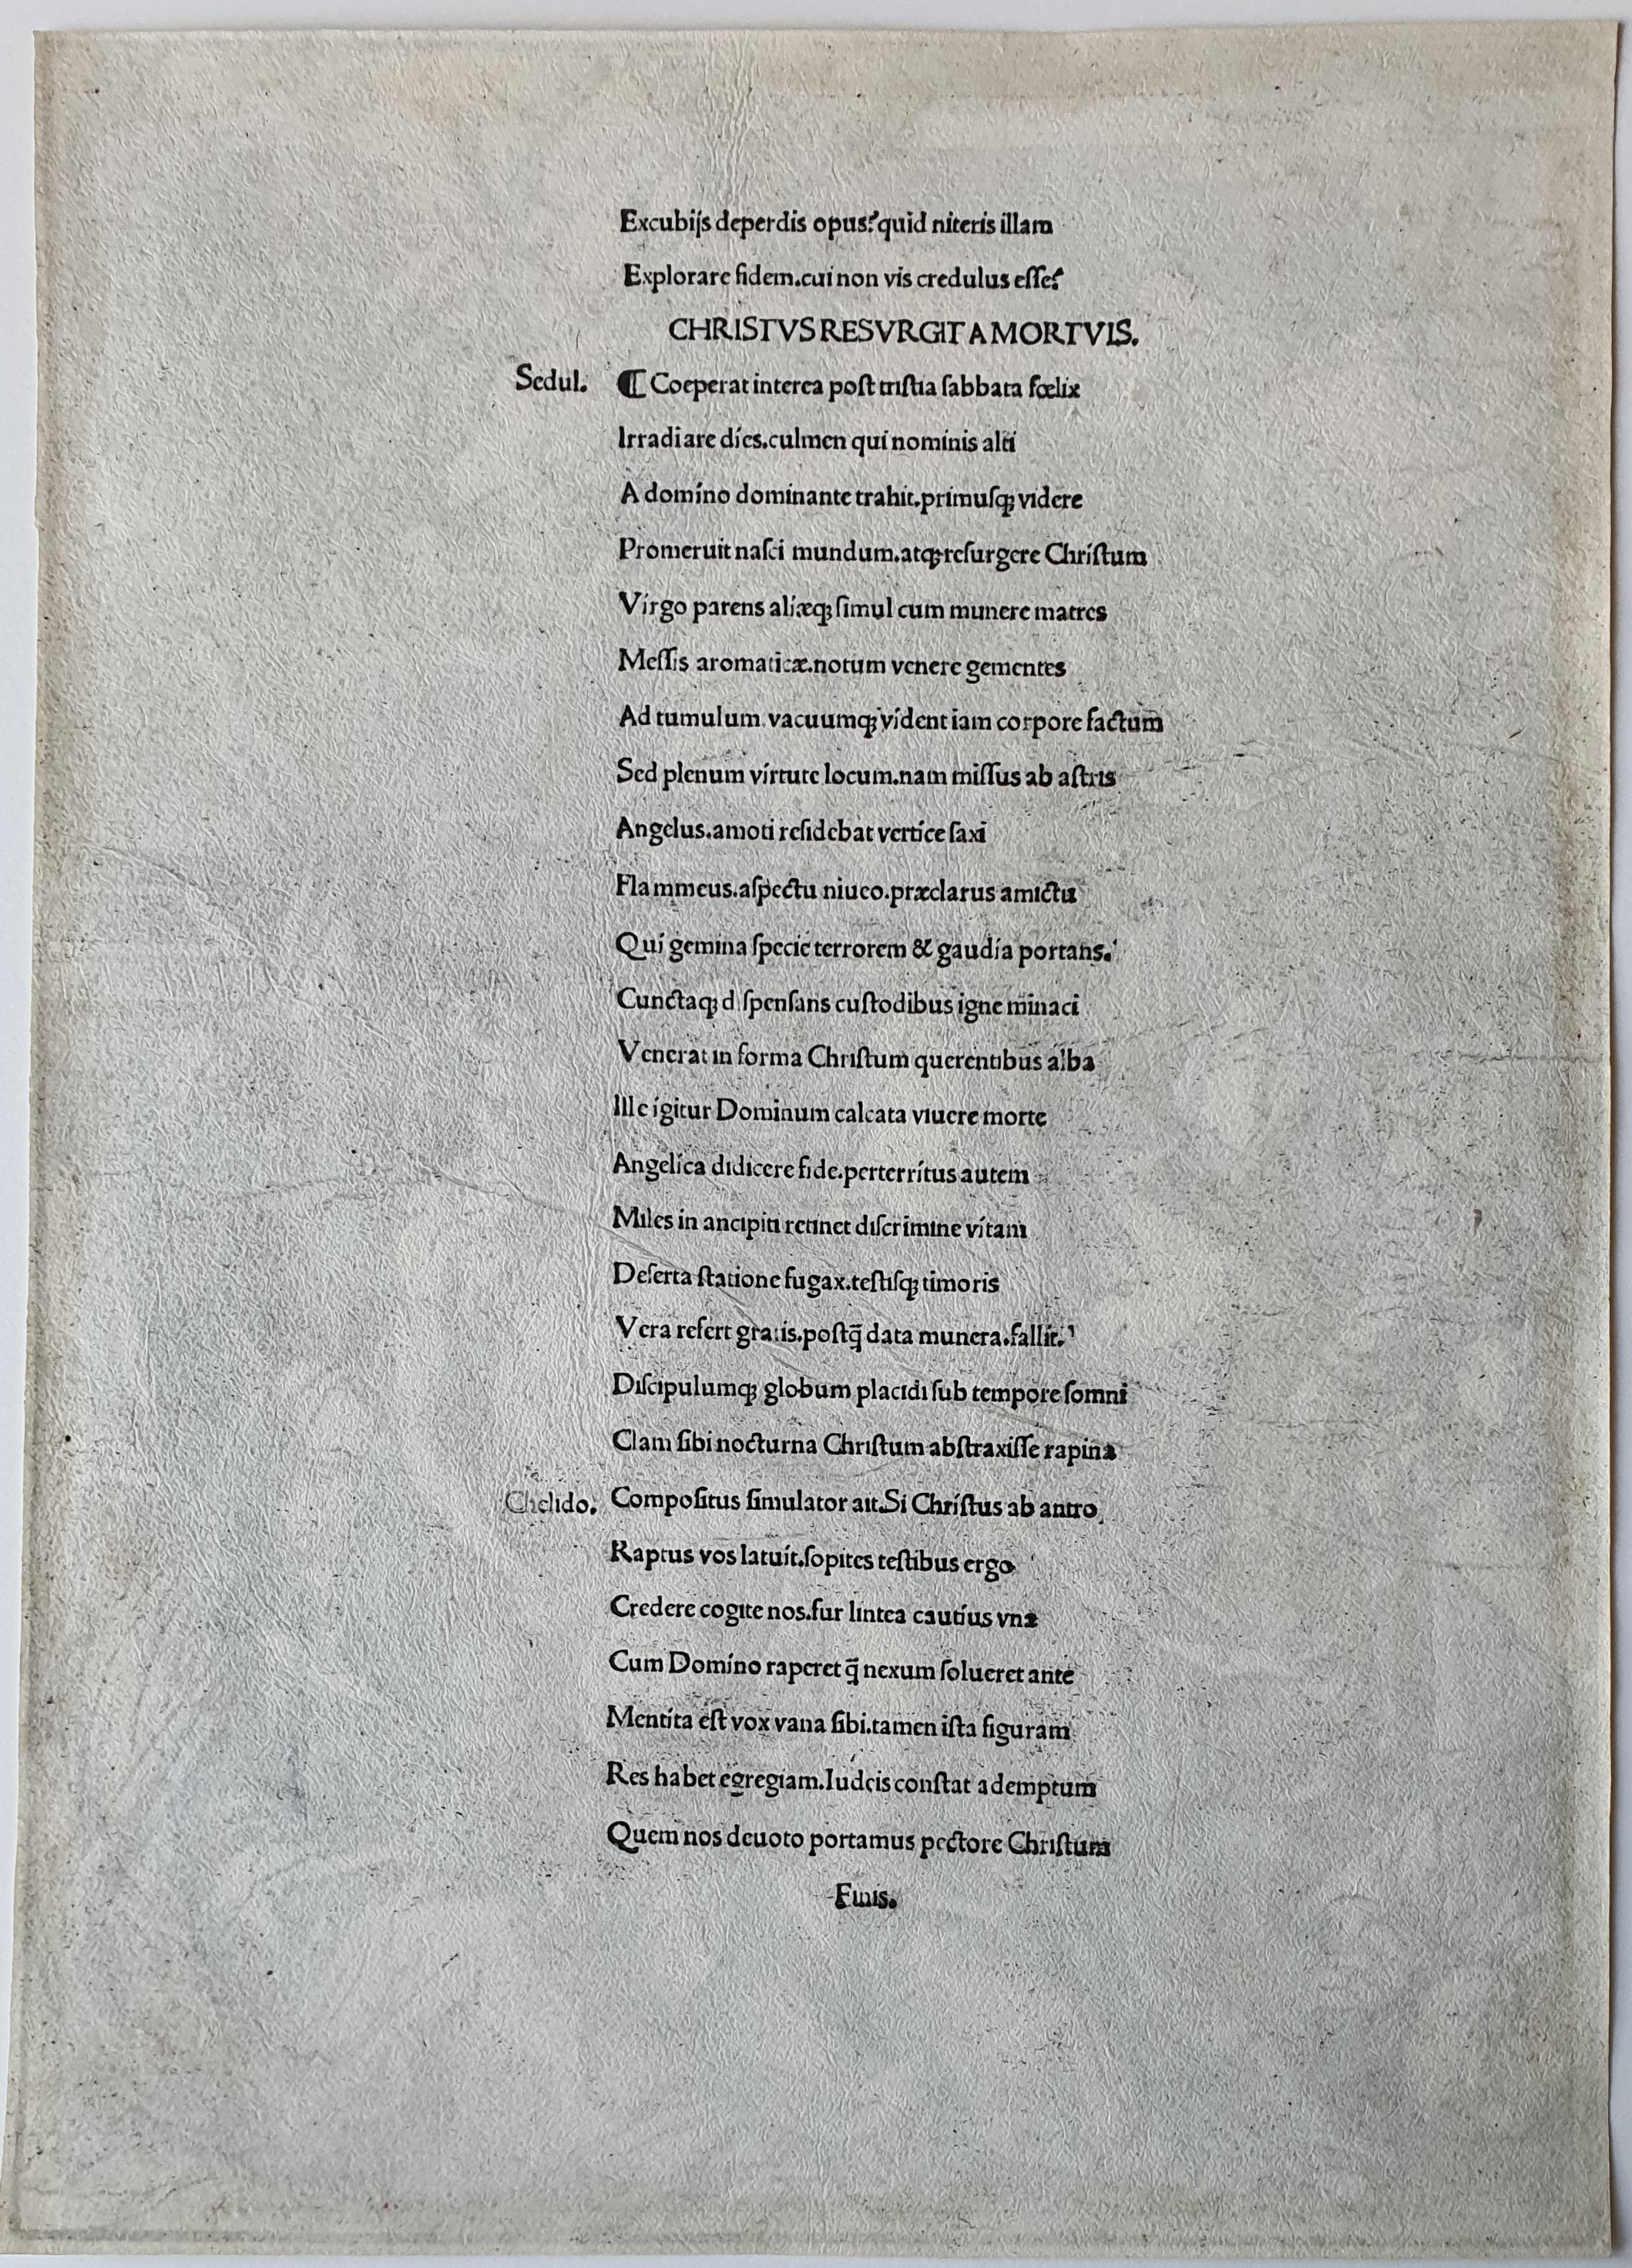 Excubijs deperdis opus? quid niteris illam
Explorare fidem. cui non vis credulus eſſe?
CHRISTVS RESVRGIT A MORTVIS.
Sedul. ⁋ Coeperat interea poſt triſtia ſabbata fœlix
Irradiare dies. culmen qui nominis alti
A domino dominante trahit. primuſqꝫ videre
Promeruit naſci mundum. atqꝫ reſurgere Chriſtum
Virgo parens aliæqꝫ ſimul cum munere matres
Meſſis aromaticæ. notum venere gementes
Ad tumulum vacuumqꝫ vident iam corpore factum
Sed plenum virtute locum. nam miſſus ab aſtris
Angelus. amoti reſidebat vertice ſaxi
Flammeus. aſpectu niueo. præclarus amictu
Qui gemina ſpecie terrorem & gaudia portans.
Cunctaqꝫ d ſpenſans cuſtodibus igne minaci
Venerat in forma Chriſtum querentibus alba
Ille igitur Dominum calcata viuere morte
Angelica didicere fide. perterritus autem
Miles in ancipiti retinet diſcrimine vitam
Deſerta ſtatione fugax. teſtiſqꝫ timoris
Vera refert gratis. poſtq̄ data munera. fallit.
Diſcipulumqꝫ globum placidi ſub tempore ſomni
Clam ſibi nocturna Chriſtum abſtraxiſſe rapina
Chelido. Compoſitus ſimulator ait. Si Chriſtus ab antro
Raptus vos latuit. ſopites teſtibus ergo
Credere cogite nos. fur lintea cautius vna
Cum Domino raperet q̄ nexum ſolueret ante
Mentita eſt vox vana ſibi. tamen iſta figuram
Res habet egregiam. Iudeis conſtat ademptum
Quem nos deuoto portamus pectore Chriſtum
Finis.